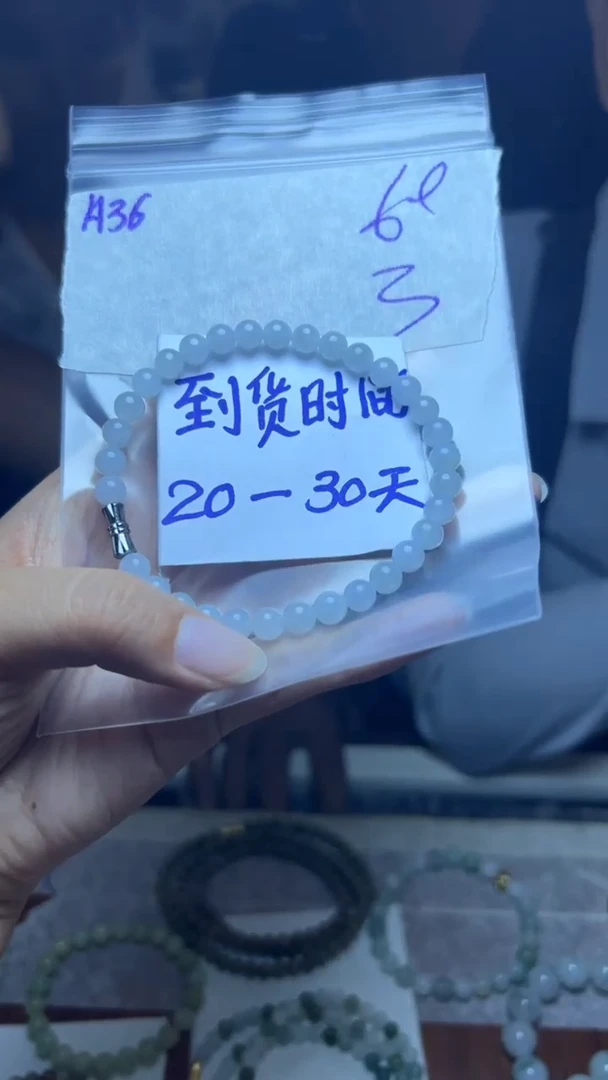 A36
到货时间
20-30天